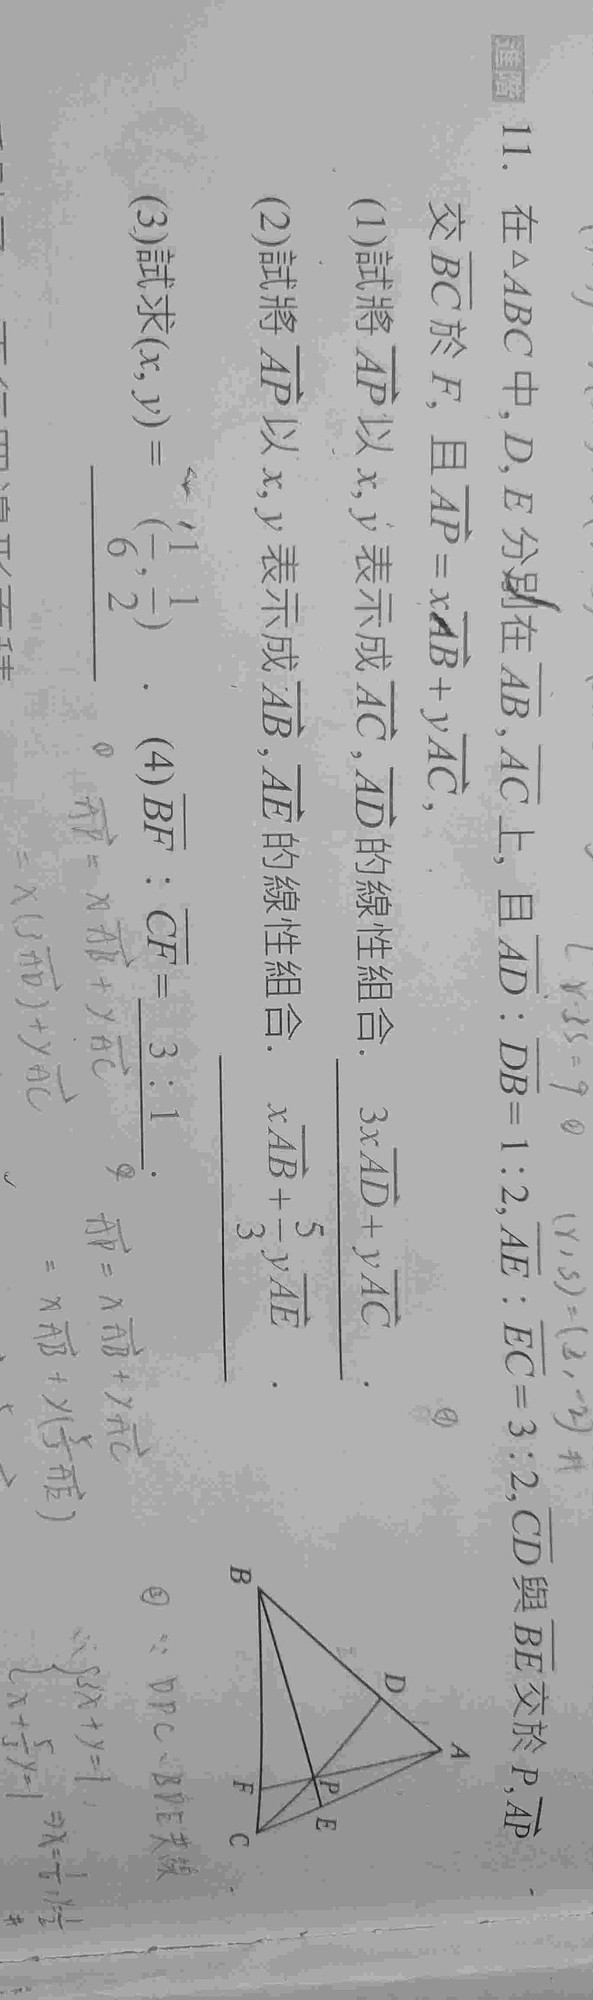 進階 11. 在△ABC中, D, E 分別在 AB, AC 上, 且 AD : DB = 1 : 2, AE : EC = 3 : 2, CD 與 BE 交於 P, AP
交 BC 於 F, 且 AP = xAB + yAC,
(1)試將 AP 以 x, y 表示成 AC, AD 的線性組合. 3xAD + yAC .
(2)試將 AP 以 x, y 表示成 AB, AE 的線性組合. xAB + 5/3 yAE .
(3)試求(x, y) = (1/6, 1/2) . (4) BF : CF = 3 : 1 .
A
D
P
E
B
F
C
(r, s) = (3, -2) #
① AP = xAB + yAC
= x(3AD) + yAC
② AP = xAB + yAC
= xAB + y(5/3 AE)
③ ∵ DPC、BPE共線
∴ { 3x + y = 1
x + 5/3 y = 1 ⇒ x = 1/6, y = 1/2 #